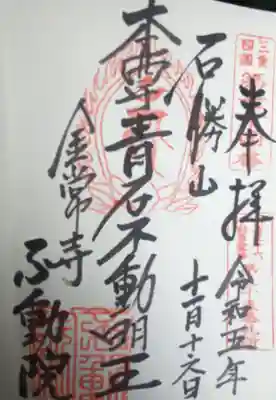 三重
四国
奉拝
令和五年
十一月十六日
石勝山
本尊青石不動明王
金常寺
不動院